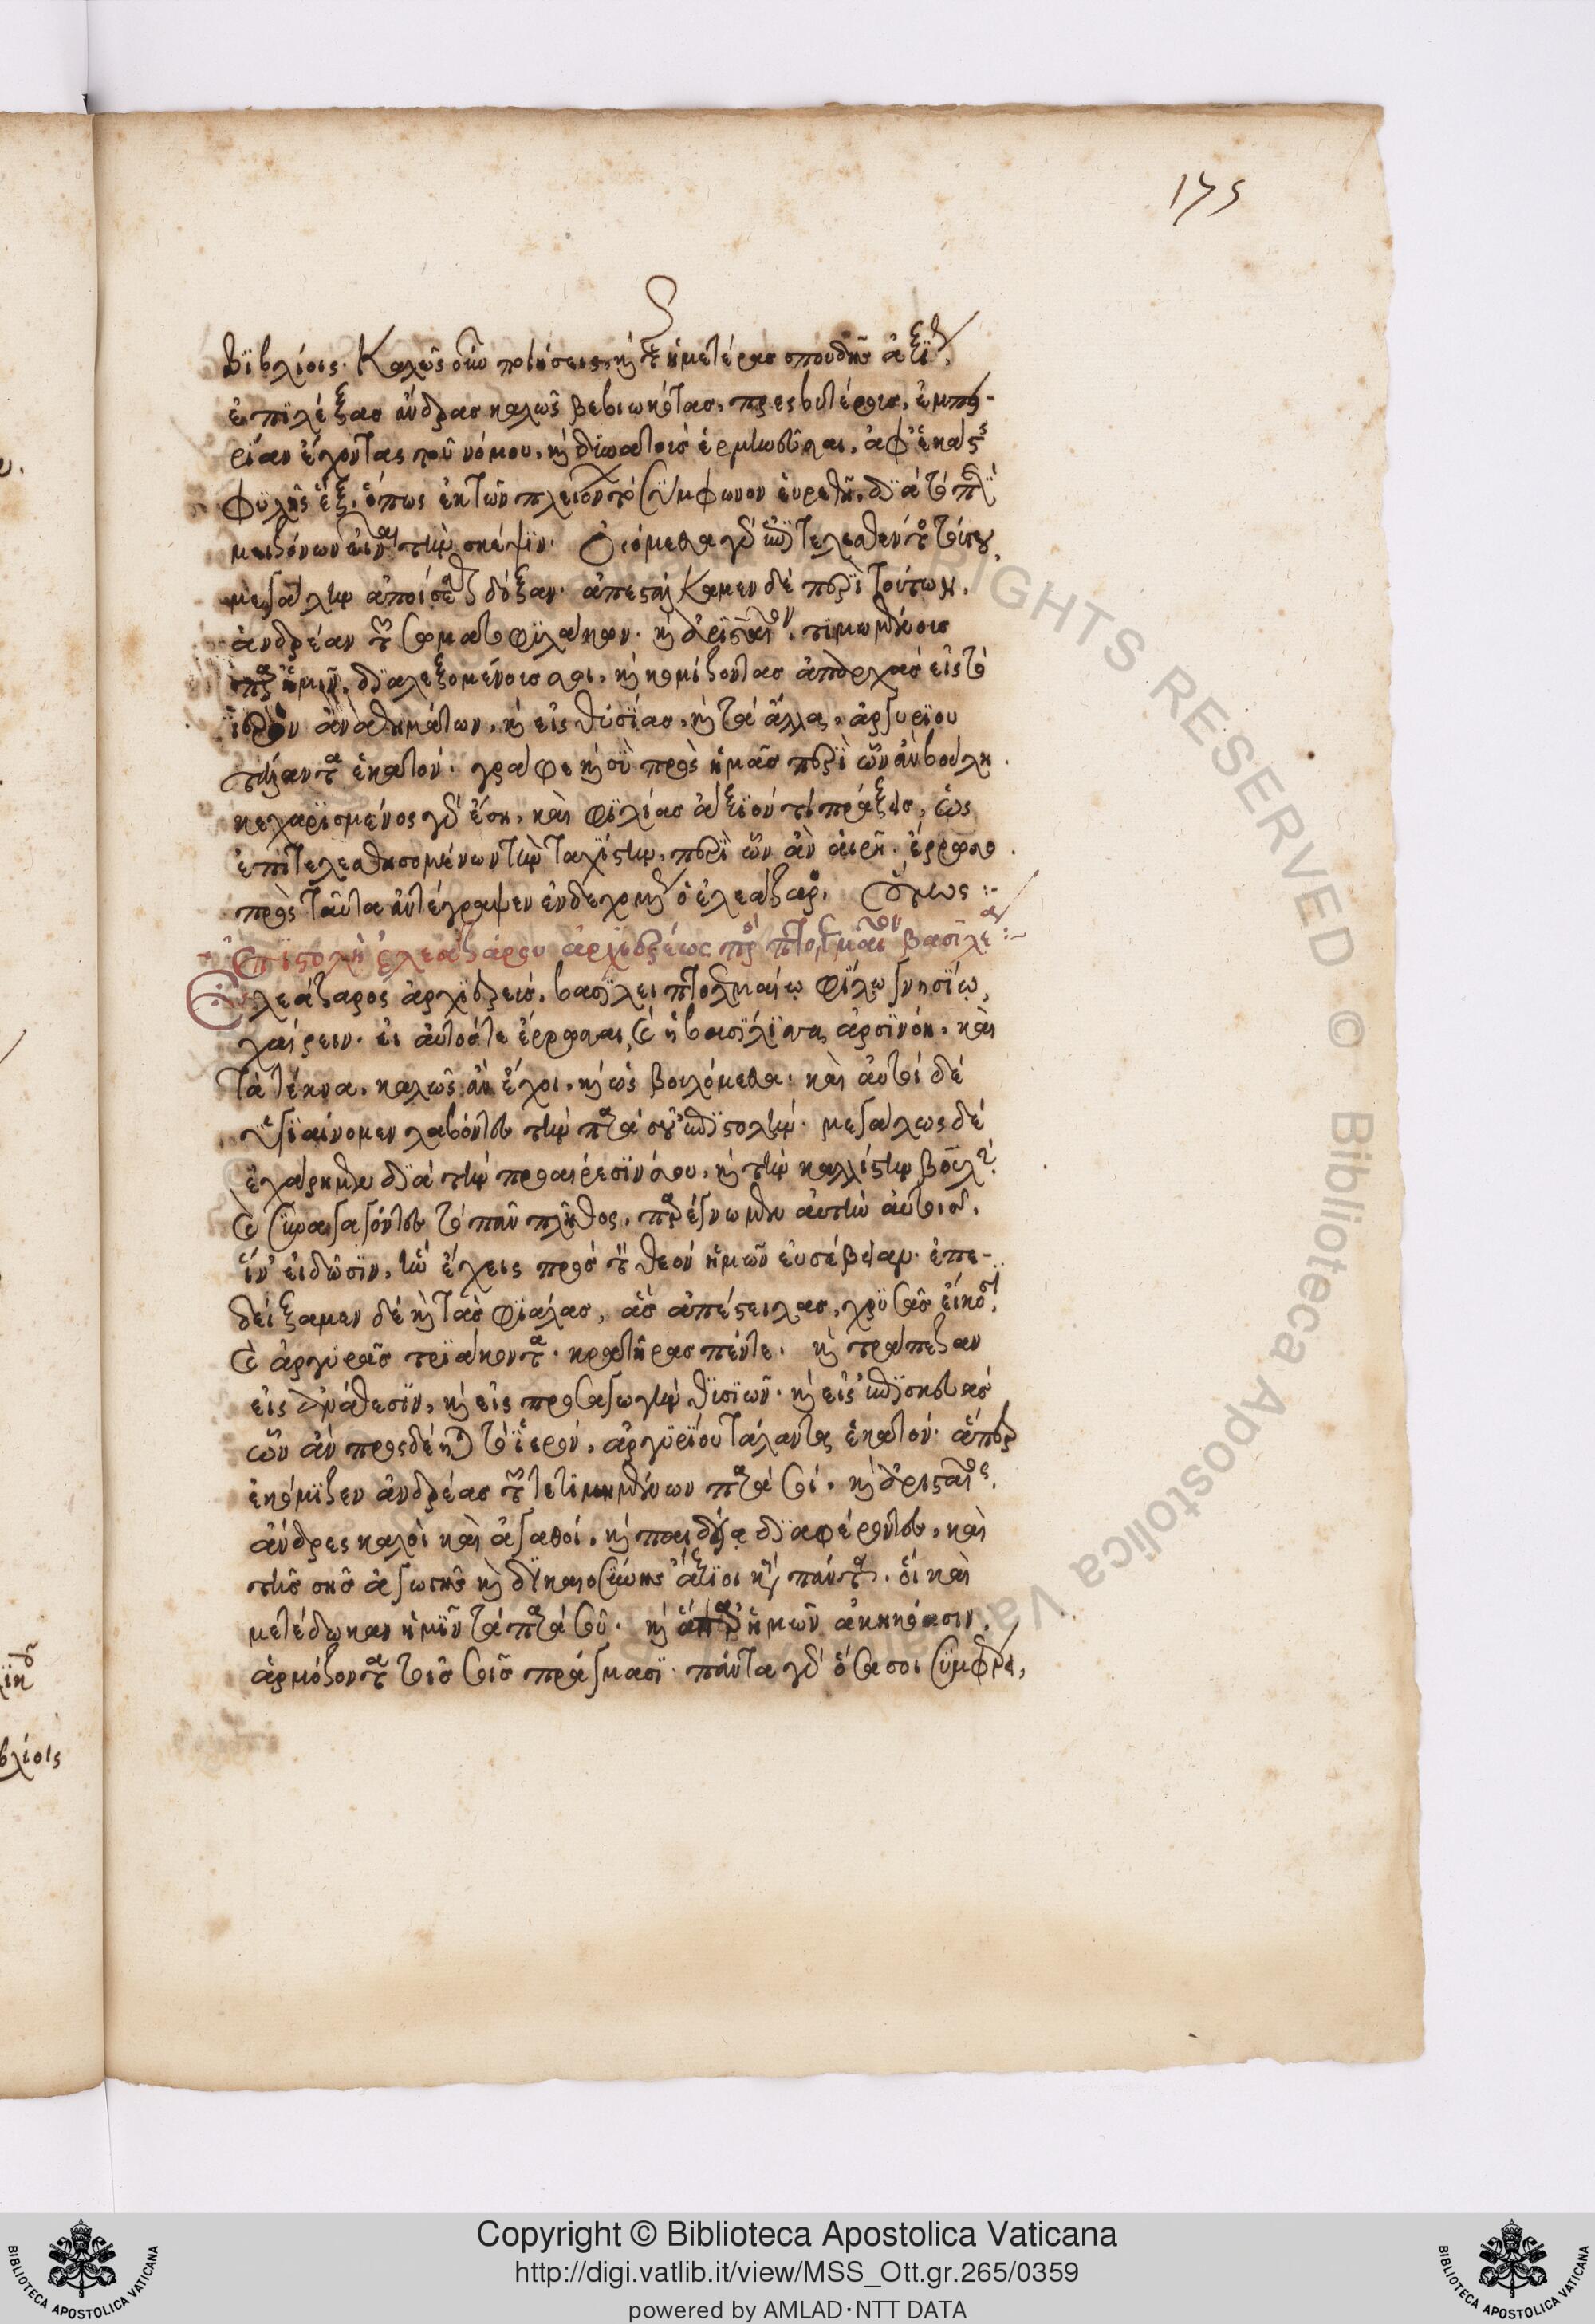 175
βϊβλίοις. Καλῶς οὖν ποιήσεις, καὶ τῆς ἡμετέρας σπουδῆς ἀξίως,
ἐπϊλέξας ἄνδρας καλῶς βεβιωκότας, πρεσβυτέρους, ἐμπει-
ρίαν ἔχοντας τοῦ νόμου, καὶ δϋνατοὺς ἑρμηνεῦσαι, ἀφ' ἑκάστης
φϋλῆς ἓξ, ὅπως ἐκ τῶν πλειόνων τὸ σύμφωνον εὑρεθῆ, δϊὰ τὸ περὶ
μειζόνων εἶναι τὴν σκέψϊν. Οἰόμεθα γὰρ ἐπιτελεσθέντος τούτου
μεγάλην ἀποίσεσθαι δόξαν. ἀπεστάλΚαμεν δὲ περὶ τούτων,
ἀνδρέαν τῶν σωματοφϋλάκων. καὶ ἀρϊσταῖον, τιμωμένους
παρ' ἡμῖν, δϊαλεξομένους σοι, καὶ κομίζοντας ἀπαρχὰς εἰς τὸ
ἱερὸν ἀναθημάτων, καὶ εἰς θυσίας, καὶ τὰ ἄλλα, ἀργυρίου
τάλαντα ἑκατόν. γράφε καὶ σὺ πρὸς ἡμᾶς περὶ ὧν ἂν βούλη.
κεχαρϊσμένος γὰρ ἔση, καὶ φϊλίας ἄξϊόν τι πράξεις, ὡς
ἐπϊτελεσθησομένων τὴν ταχίστην, περὶ ὧν ἂν αἱρῆ. ἔρρωσο.
πρὸς ταῦτα ἀντέγραψεν ἐνδεχομένως ὁ ἐλεάζαρος,
Ἐπιστολὴ ἐλεαζάρου ἀρχιερέως πρὸς πτολεμαῖον βασιλέα:~
Ἐλεάζαρος ἀρχϊερεὺς, βασϊλεῖ πτολεμαίῳ φϊλῳ γνησίῳ,
χαίρειν. εἰ αὐτός τε ἔρρωσαι, καὶ ἡ βασϊλίσσα ἀρσϊνόη, καὶ
τὰ τέκνα, καλῶς ἂν ἔχοι, καὶ ὡς βουλόμεθα. καὶ αὐτοὶ δὲ
ὑγϊαίνομεν λαβόντες τὴν παρὰ σοῦ ἐπϊστολὴν. μεγάλως δὲ
ἐχάρημεν δϊὰ τὴν προαίρεσϊν σου, καὶ τὴν καλλίστην βουλήν.
καὶ συναγαγόντες τὸ πᾶν πλῆθος, παρέγνωμεν αὐτὴν αὐτοῖς,
ἵν' εἰδῶσϊν, ἣν ἔχεις πρὸς τὸν θεὸν ἡμῶν εὐσέβειαν. ἐπε-
δείξαμεν δὲ καὶ τὰς φϊάλας, ἃς ἀπέστειλας, χρϋσᾶς εἴκοσι,
καὶ ἀργυρᾶς τρϊάκοντα. κρατῆρας πέντε. καὶ τράπεζαν
εἰς ἀνάθεσϊν, καὶ εἰς προσαγωγὴν θϋσϊῶν. καὶ εἰς ἐπϊσκευὰς
ὧν ἂν προσδέηται τὸ ἱερὸν, ἀργϋρίου τάλαντα ἑκατόν. ἅπερ
ἐκόμϊζεν ἀνδρέας τῶν τετιμημένων παρὰ σοί. καὶ ἀρισταῖος,
ἄνδρες καλοὶ καὶ ἀγαθοὶ, καὶ παιδείᾳ δϊαφέροντες, καὶ
τῆς σῆς ἀγωγῆς καὶ δϊκαιοσύνης ἄξϊοι κατὰ πάντα. οἳ καὶ
μετέδωκαν ἡμῖν τὰ παρὰ σοῦ. καὶ παρ' ἡμῶν ἀκηκόασιν,
ἁρμόζοντα τοῖς σοῖς γράμμασϊ. πάντα γὰρ ὅσα σοι συμφέρει,
Copyright © Biblioteca Apostolica Vaticana
http://digi.vatlib.it/view/MSS_Ott.gr.265/0359
powered by AMLAD·NTT DATA